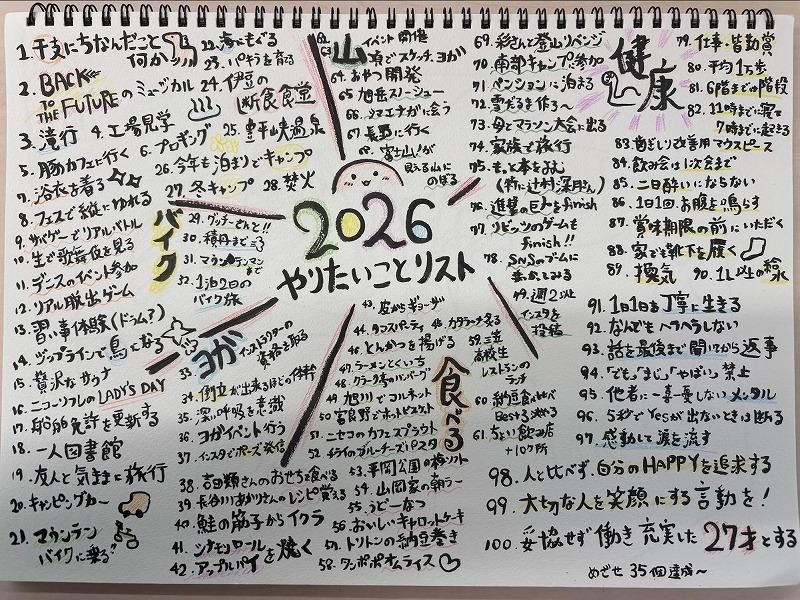 2026
やりたいことリスト
1. 干支にちなんだこと
何かっ
2. BACK
TO THE FUTUREのミュージカル
3. 滝行 4. 工場見学
5. 豚カフェに行く
6. プロギング
7. 浴衣を着る
8. フェスで縦にゆれる
9. サバゲーでリアルバトル
10. 生で歌舞伎を見る
11. デンスのイベント参加
12. リアル脱出ゲーム
13. 習い事体験(ドラム?)
14. ジップラインで鳥になる
15. 贅沢なサウナ
16. ニコーリフレのLADY'S DAY
17. 船舶免許を更新する
18. 一人図書館
19. 友人と気ままに旅行
20. キャンピングカー
21. マウンテン
バイクに乗る"
22. 海にもぐる
23. パキラを育る
24. 伊豆の
断食食堂
25. 豊平峡温泉
26. 今年も泊まりでキャンプ
27. 冬キャンプ 28. 焚火
バイク
29. グッチーさんと!!
30. 積丹まで
31. マウンテンマンまで
32. 1泊2日の
バイク旅
ヨガ
33. インストラクターの
資格を取る
34. 倒立が出来るほどの体幹
35. 深い呼吸を意識
36. ヨガイベント行う
37. インスタでポーズ発信
38. 吉田類さんのおせちを食べる
39. 長谷川あかりさんのレシピ覚える
40. 鮭の筋子からイクラ
41. シナモンロール
42. アップルパイを焼く
食べる
43. 皮からギョーザ
44. タコスパーティ
45. カタラーナ炙る
46. とんかつを揚げる
47. ラーメンとくいち
48. クラーク亭のハンバーグ
49. 旭川でコルネット
50. 富良野でホットビスケット
51. ニセコのカフェスプラウト
52. チライのブルーチーズパスタ
53. 平岡公園の梅ソフト
54. 山岡家の朝ラー
55. うどーなつ
56. おいしいキャロットケーキ
57. トリトンの納豆巻き
58. タンポポオムライス
59. 三笠
高校生
レストランの
ランチ
60. 納豆食べ比べ
Best4決める
61. ちょい飲み店
+10ケ所
山
イベント開催
頂でスケッチ、ヨガ
64. おやつ開発
65. 旭岳スノーシュー
66. シマエナガに会う
67. 長野に行く
68. 富士山!が
見える山に
のぼる
69. 彩さんと登山リベンジ
70. 南部キャンプ参加
71. ペンションに泊まる
72. 雪だるま作る〜
73. 母とマラソン大会に出る
74. 家族で旅行
75. もっと本をよむ
(特に辻村深月さん)
76. 進撃の巨人をfinish
77. リビッツのゲームも
finish!!
78. SNSのブームに
一番おしみる
49. 週2以上
インスタを
投稿
健康
79. 仕事・皆勤賞
80. 平均1万歩
81. 6階までは階段
82. 11時まで寝て
7時までに起きる
83. 歯ぎしり改善用マウスピース
84. 飲み会は1次会まで
85. 二日酔いにならない
86. 1日1回お腹を鳴らす
87. 賞味期限の前にいただく
88. 家でも靴下を履く
89. 換気 90. 1L以上の給水
91. 1日1日を丁寧に生きる
92. なんでもヘラヘラしない
93. 話を最後まで聞いてから返事
94. "でも""まじ""やばい"禁止
95. 他者に一喜一憂しないメンタル
96. 5秒でYesが出ないときは断る
97. 感動して涙を流す
98. 人と比べず、自分のHAPPYを追求する
99. 大切な人を笑顔にする言動を!
100. 妥協せず働き充実した27才とする
めざせ35個達成〜